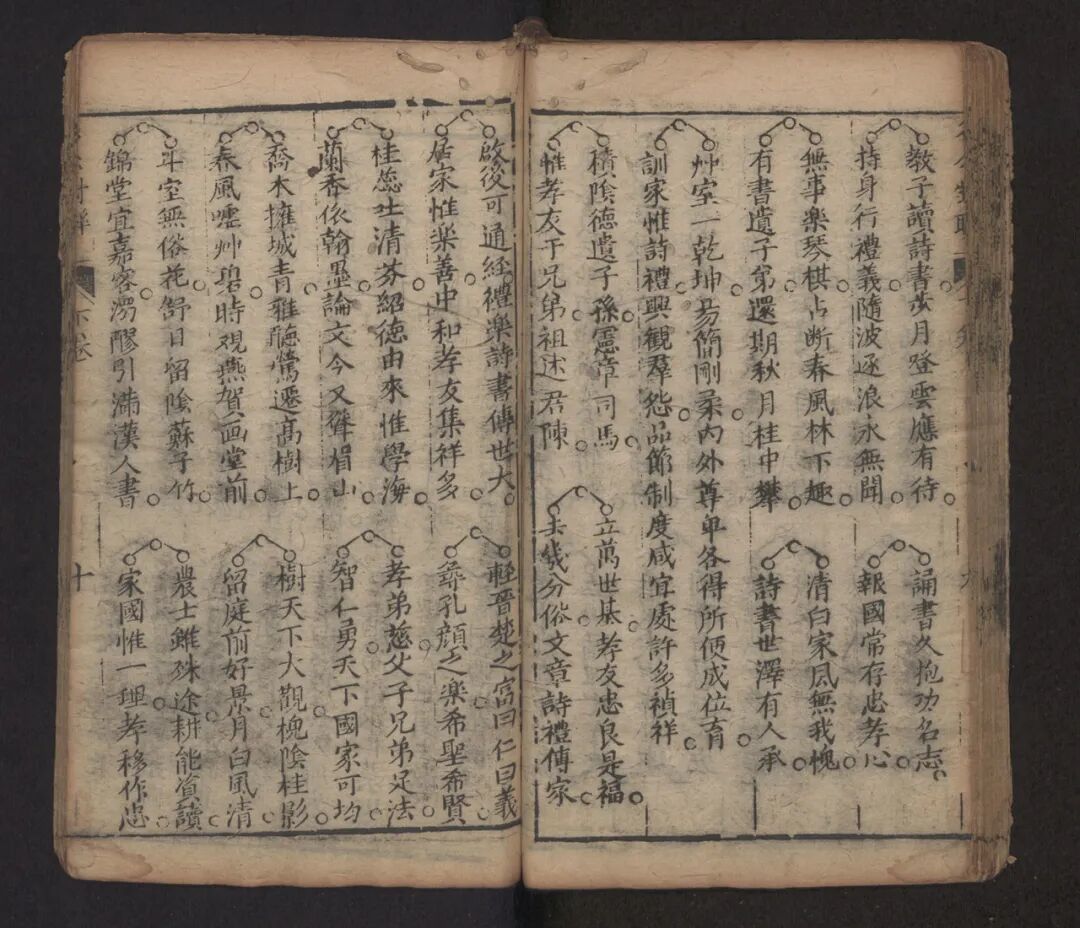 教子讀詩書歩月登雲應有待
誦書久抱功名志
持身行禮義隨波逐浪永無聞
報國常存忠孝心
無事樂琴棋占断春風林下趣
清白家風無我愧
有書遺子弟還期秋月桂中攀
詩書世澤有人承
艸室一乾坤易簡剛柔内外尊卑各得所便成位育
訓家惟詩禮興觀羣怨品節制度咸宜處許多禎祥
積陰德遺子孫憲章司馬
立萬世基孝友忠良是福
惟孝友于兄弟祖述君陳
去幾分俗文章詩禮傳家
啟後可通經禮樂詩書傳世大
輕晉楚之富曰仁曰義
居家惟樂善中和孝友集祥多
孔顔之樂希聖希賢
桂蕊吐清芬紹德由來惟學海
孝弟慈父子兄弟足法
蘭香依翰墨論文今又聳眉山
智仁勇天下國家可均
喬木擁城青雅聽鶯遷高樹上
樹天下大觀槐陰桂影
春風嘘艸碧時观燕賀画堂前
留庭前好景月白風清
斗室無俗花舒日留陰蘇子竹
農士雖殊途耕能資讀
錦堂宜嘉客醪引滿漢人書
家國惟一理孝移作忠
下卷
十